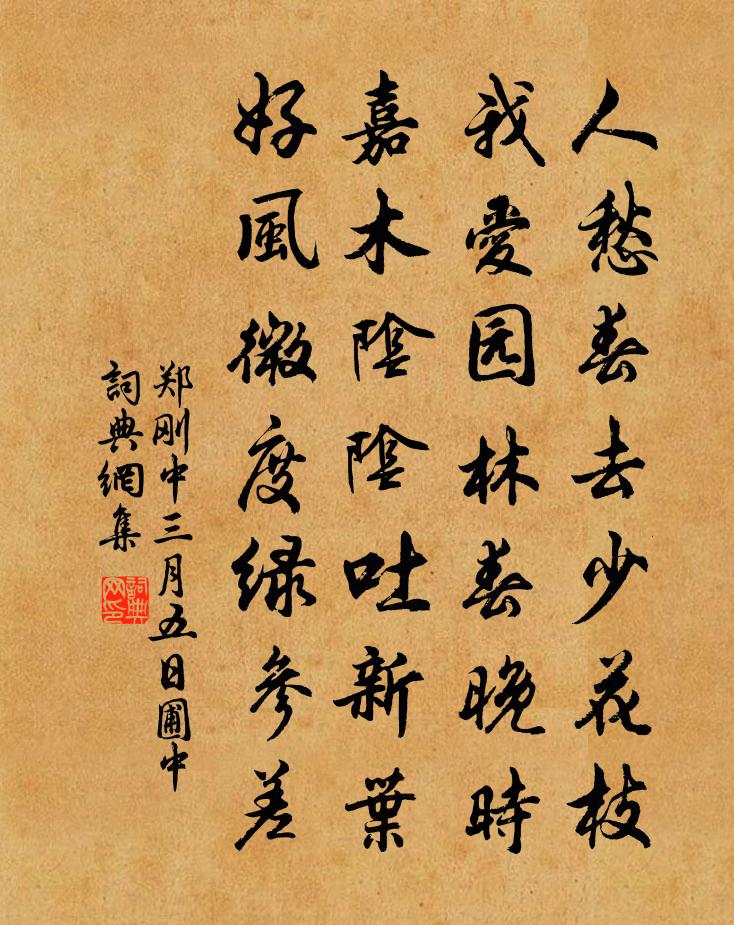 人愁春去少花枝
我愛园林春晚時
嘉木陰陰吐新葉
好風微度绿參差
郑刚中三月五日圃中
詞典網集
詞典网印